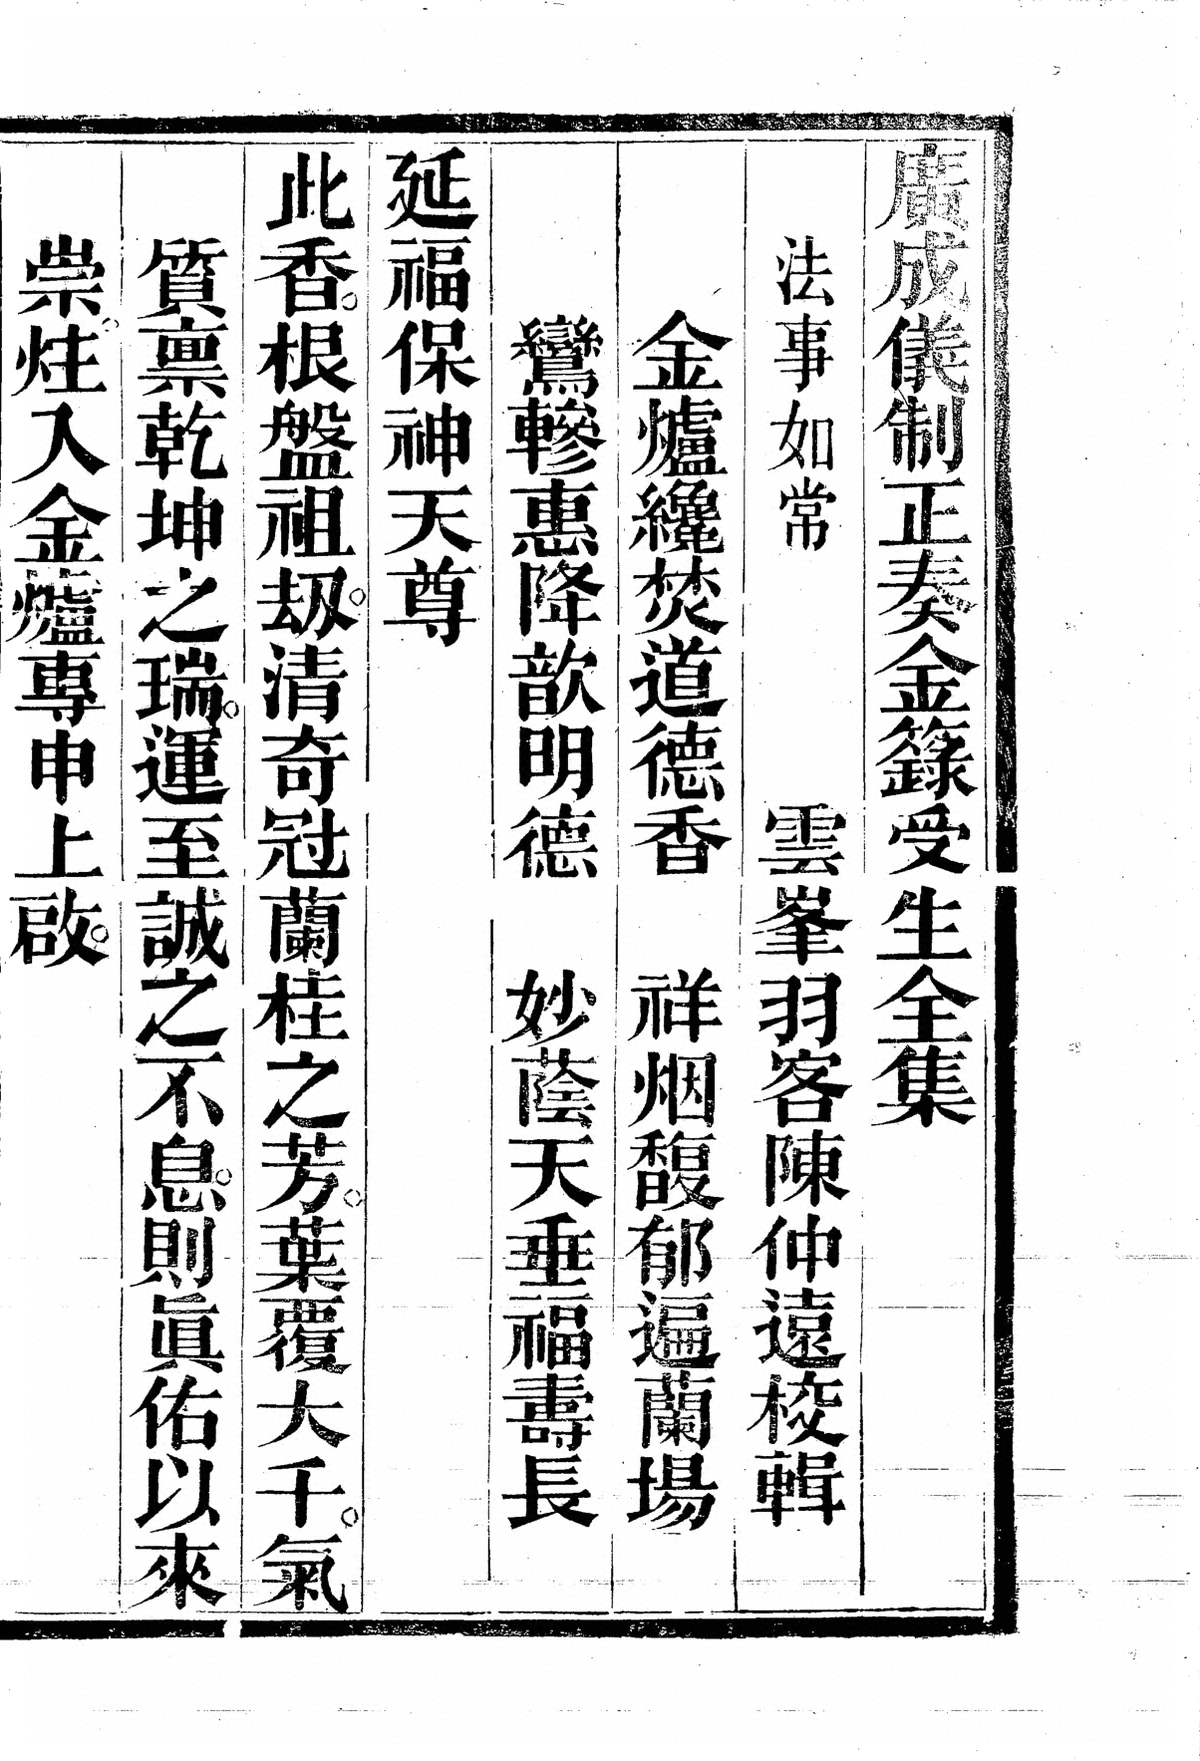 廣成儀制正奏金籙受生全集
法事如常　雲峯羽客陳仲遠校輯
金爐纔焚道德香　祥烟馥郁遍蘭場
鸞驂惠降歆明德　妙蔭天垂福壽長
延福保神天尊
此香。根盤祖劫。清奇冠蘭桂之芳。葉覆大千。氣
質禀乾坤之瑞。運至誠之不息。則眞佑以來
崇。炷入金爐專申上啟。